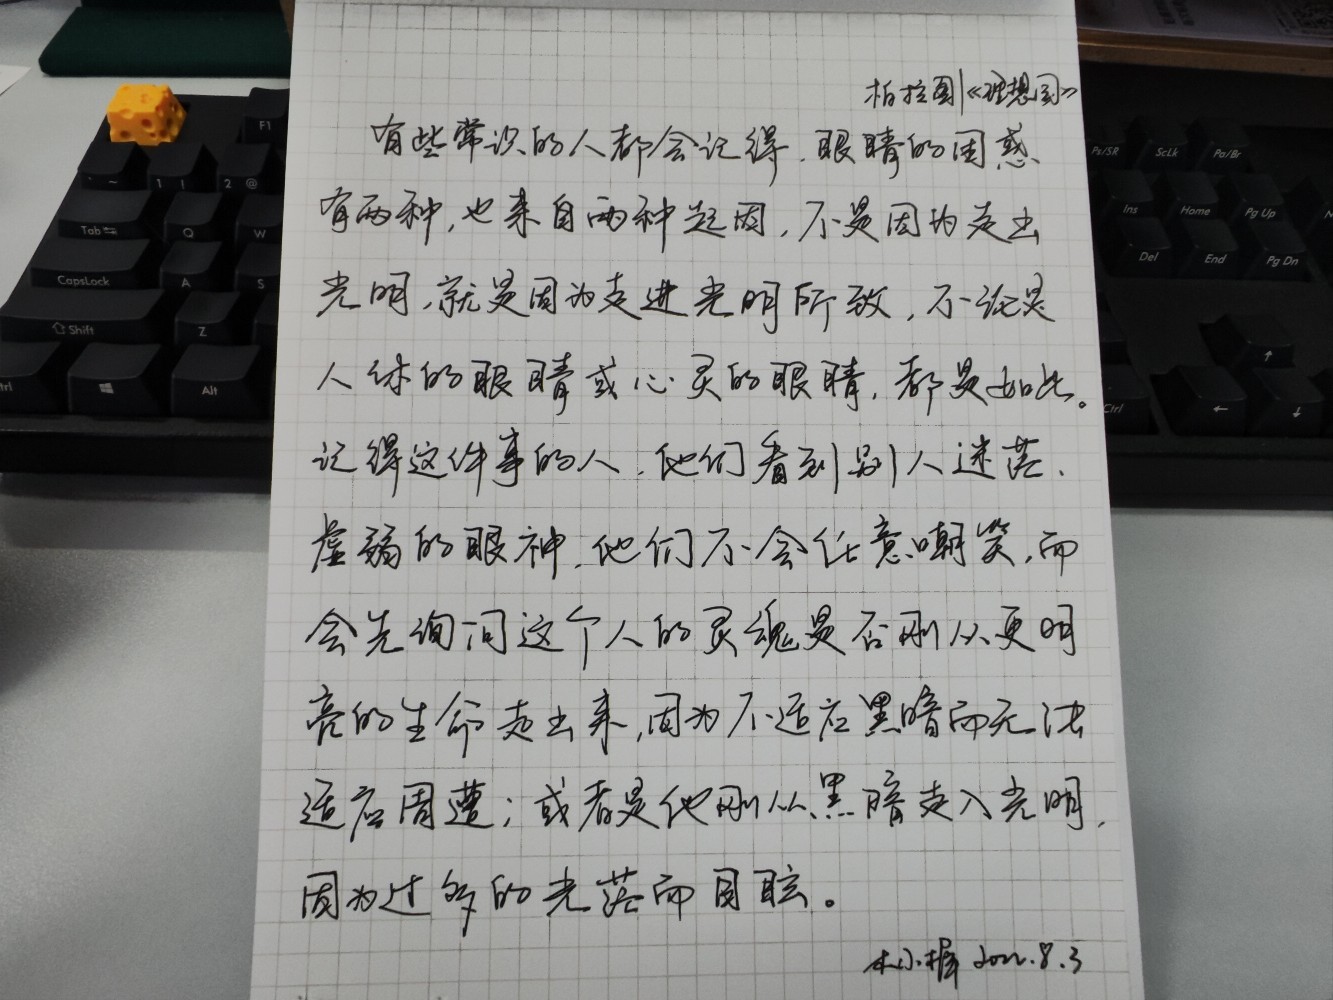 柏拉图|《理想国》
有些常识的人都会记得,眼睛的困惑
有两种,也来自两种起因,不是因为走出
光明,就是因为走进光明所致,不论是
人体的眼睛或心灵的眼睛,都是如此。
记得这件事的人,他们看到别人迷茫、
虚弱的眼神,他们不会任意嘲笑,而
会先询问这个人的灵魂是否刚从更明
亮的生命走出来,因为不适应黑暗而无法
适应周遭;或者是他刚从黑暗走入光明,
因为过多的光芒而目眩。
木小樨 2022.8.3
F1
~
1 !
2 @
Tab
Q
W
CapsLock
A
S
Shift
Z
Alt
Ps/SR
ScLk
Pa/Br
Ins
Home
Pg Up
Del
End
Pg Dn
Ctrl
↑
←
↓